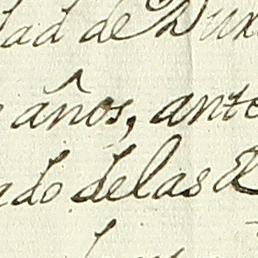 dad de Dur
años, ante
ado delas E